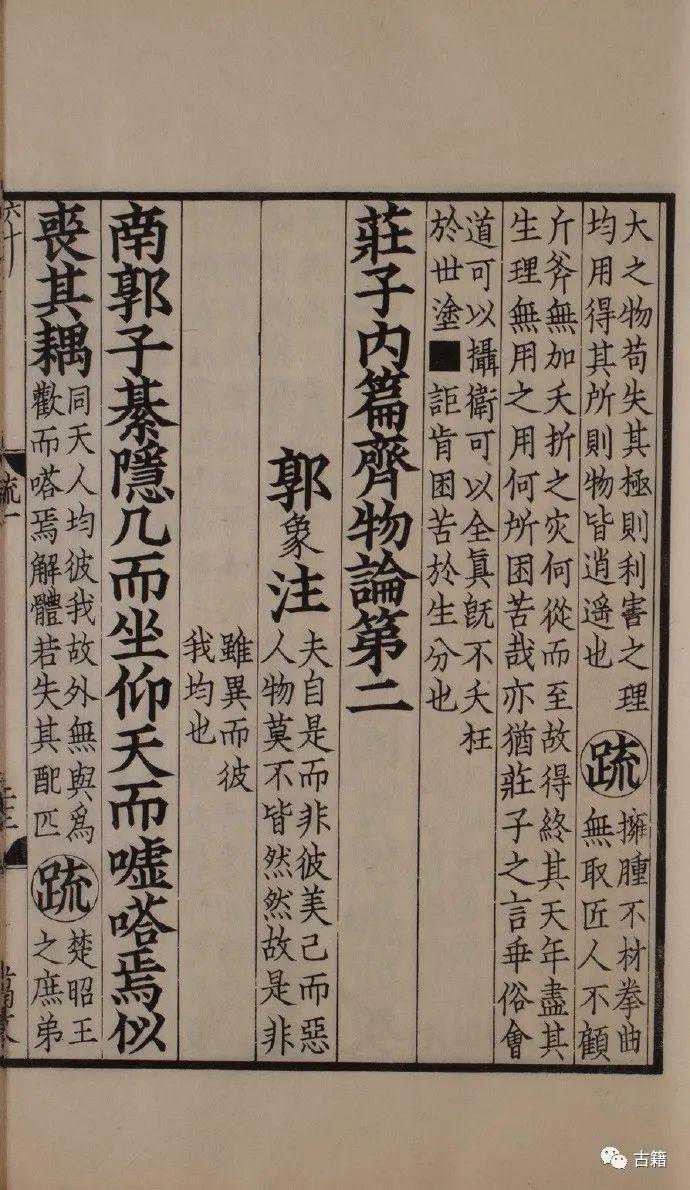 大之物苟失其極則利害之理
均用得其所則物皆逍遥也
疏
擁腫不材拳曲
無取匠人不顧
斤斧無加夭折之灾何從而至故得終其天年盡其
生理無用之用何所困苦哉亦猶莊子之言乖俗會
道可以攝衛可以全真旣不夭枉
於世塗■詎肯困苦於生分也
莊子内篇齊物論第二
郭象注
夫自是而非彼美己而惡
人物莫不皆然然故是非
雖異而彼
我均也
南郭子綦隱几而坐仰天而噓嗒焉似
喪其耦
同天人均彼我故外無與爲
歡而嗒焉解體若失其配匹
疏
楚昭王
之庶弟
疏一
古籍